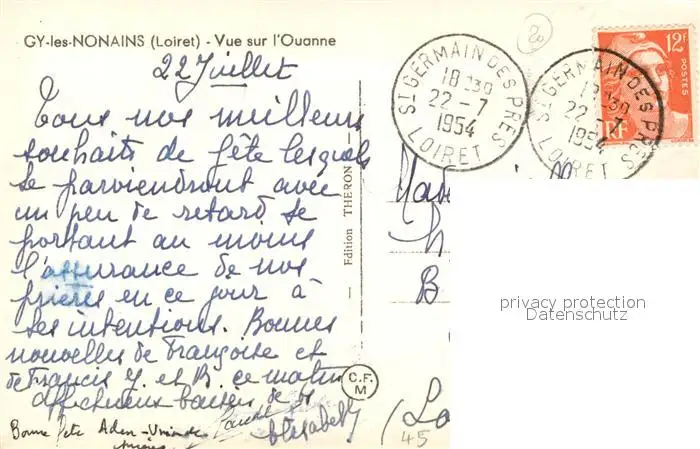 GY-les-NONAINS (Loiret) - Vue sur l'Ouanne
22 Juillet
Tous nos meilleurs
souhaits de fête lesquels
te parviendront avec
un peu de retard te
portant au moins
l'assurance de nos
prières en ce jour à
tes intentions. Bonnes
nouvelles de Françoise et
de Francis Y. et B. ce matin
affectueux baisers de
Elisabeth
Bonne fête
Edition THERON
C.F.
M
ST GERMAIN DES PRES
18 30
22-7
1954
LOIRET
ST GERMAIN DES PRES
18 30
22-7
1954
LOIRET
12F
POSTES
RF
20
B
45
privacy protection
Datenschutz